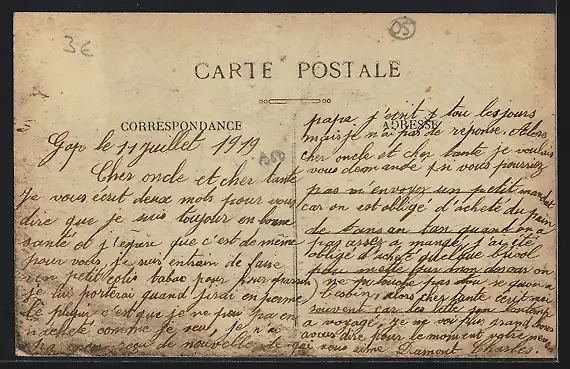 3€
05
CARTE POSTALE
CORRESPONDANCE
ADRESSE
Gap le 11 juillet 1919
Cher oncle et cher tante
Je vous écrit deux mots pour vous
dire que je suis toujour en bonne
santé et j'espère que c'est de même
pour vous, je suis entrain de faire
un petit colis tabac pour
je lui porterai quand j'irai en perme
le plus c'est que je ne peu pas en
acheté comme je veu, je n'ai
pa encor reçu de nouvelle de
papa j'écrit tou les jours
mais je n'ai pas de réponse, alors
cher oncle et cher tante je voulais
vous demande si vous pourriez
pas m'envoyez un petit mandat
car on est obligé d'acheté du pain
de tans en tans quand on a
pas assez a mangé, j'ai été
obligé d'acheté quelque
on
ne pas se quon a
alors cher tante écrit moi
souvent car les
a voyagé, je ne voi plus grand chose
a vous dire pour le moment votre neveu
qui vous aime Diamont Charles.